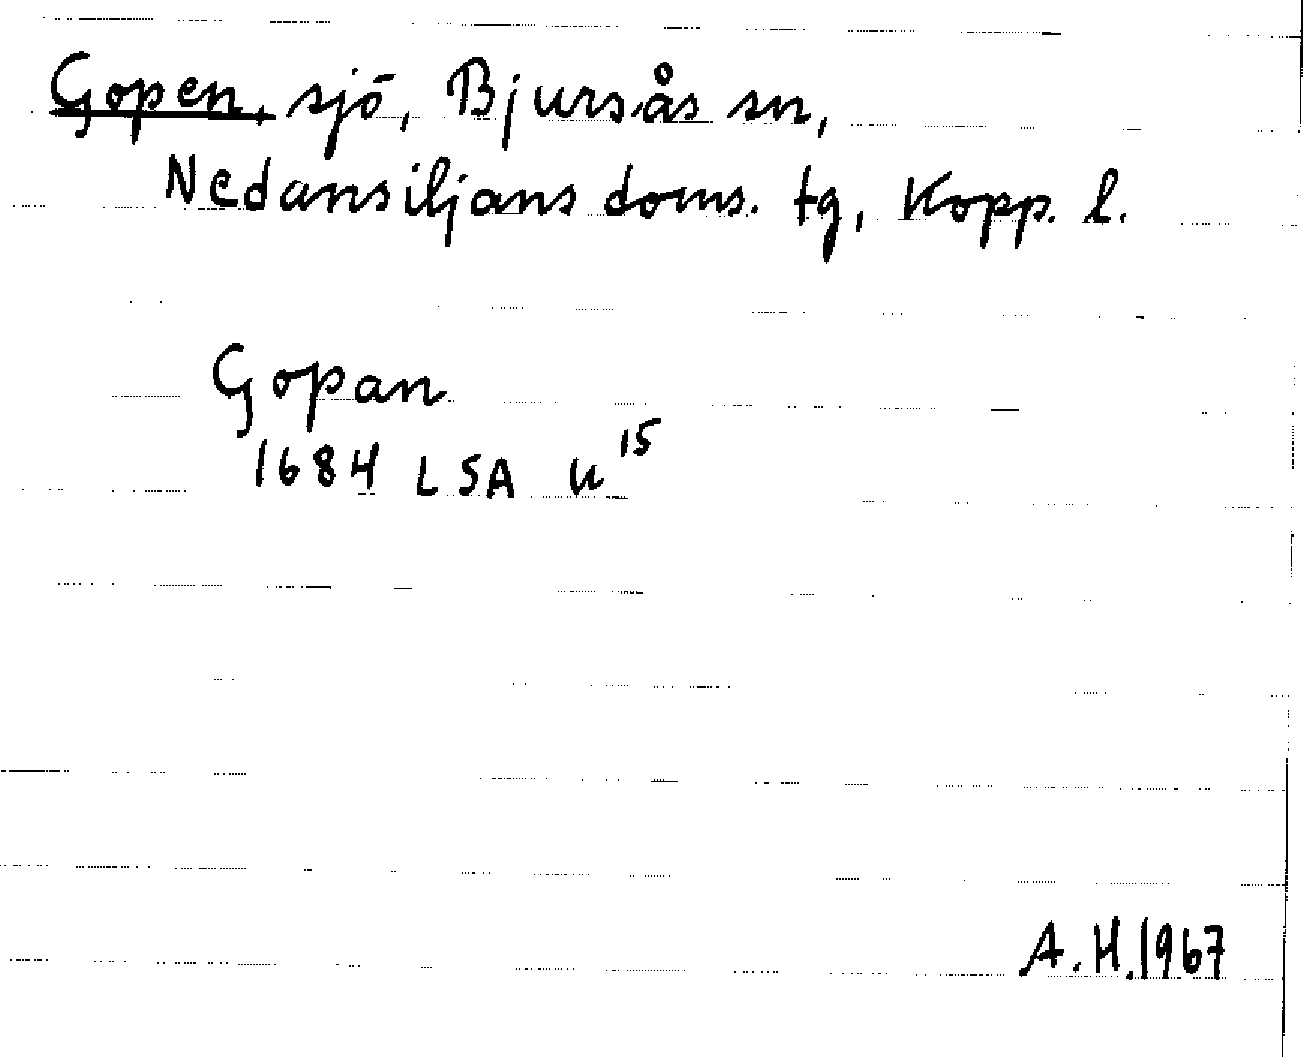 Gopen, sjö, Bjursås sn,
Nedansiljans doms. tg, Kopp. l.
Gopan
1684 LSA u¹⁵
A.H.1967